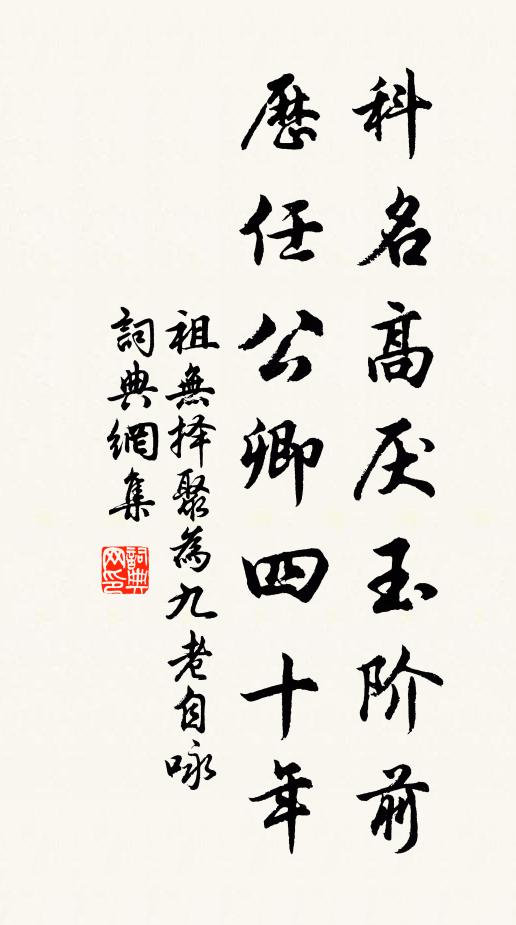 科名高厌玉阶前
歷任公卿四十年
祖無择聚為九老自咏
詞典網集
詞典网印